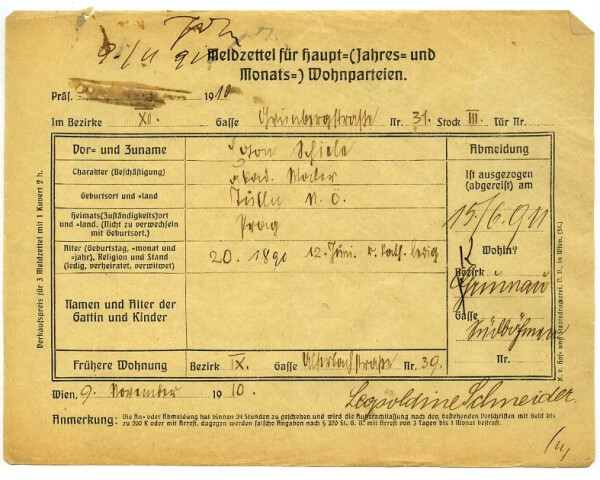 9./11 910
Meldzettel für Haupt=(Jahres= und
Monats=) Wohnparteien.
Präs. 1910
Im Bezirke XII. Gasse Grünbergstrasse Nr. 31. Stock III. Tür Nr.
Vor= und Zuname Egon Schiele
Charakter (Beschäftigung) akad. Maler
Geburtsort und =land Tulln N. Ö.
Heimats(Zuständigkeits)ort
und =land. (Nicht zu verwechseln
mit Geburtsort.) Prag
Alter (Geburtstag, =monat und
=jahr), Religion und Stand
(ledig, verheiratet, verwitwet) 20. 1890 12. Juni r. kath. ledig
Namen und Alter der
Gattin und Kinder
Frühere Wohnung Bezirk IX. Gasse Alserbachstraße Nr. 39.
Abmeldung
Ist ausgezogen
(abgereist) am
15/6. 911
Wohin?
Bezirk
Gasse
Südböhmen
Nr.
Wien, 9. November 1910.
Leopoldine Schneider.
Anmerkung: Die An= oder Abmeldung hat binnen 24 Stunden zu geschehen und wird die Außerachtlassung nach den bestehenden Vorschriften mit Geld bis
zu 200 K oder mit Arrest, dagegen werden falsche Angaben nach § 320 St. G. B. mit Arrest von 3 Tagen bis 1 Monat bestraft.
Verkaufspreis für 3 Meldzettel mit 1 Kuvert 2 h.
K. k. Hof= und Staatsdruckerei, V. D., in Wien. (St.)